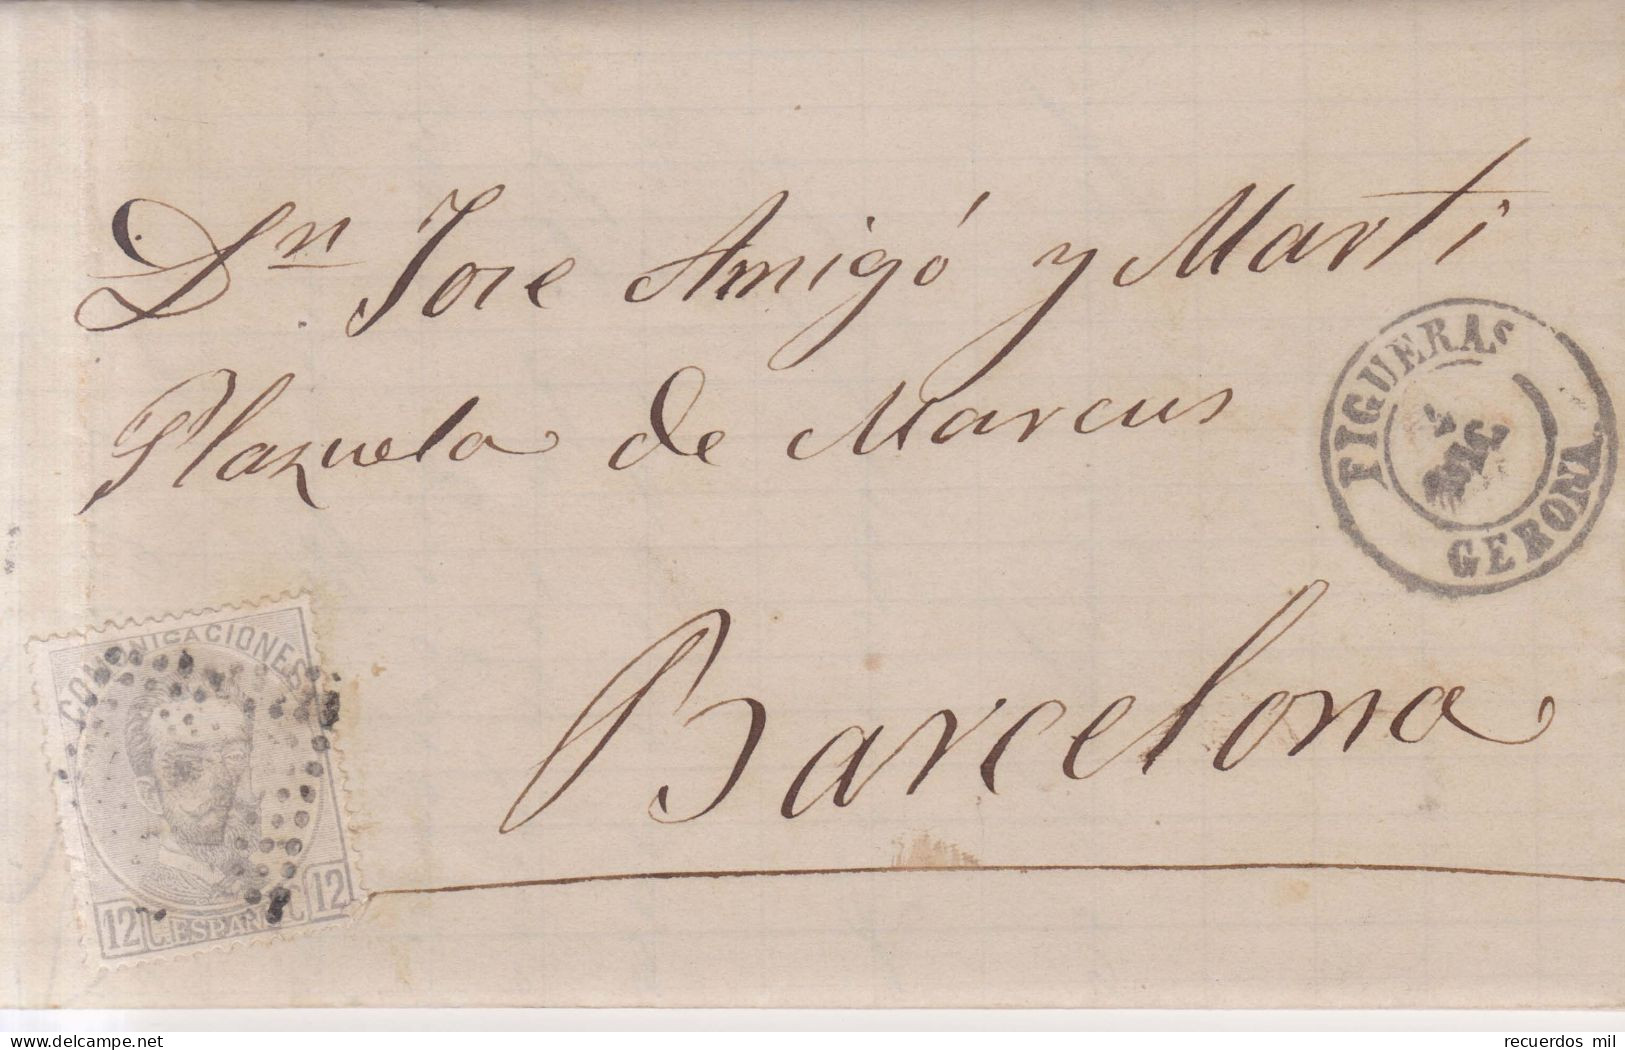 Dn Jose Amigó y Marti
Plazuela de Marcus
Barcelona
FIGUERAS
DIC
GERONA
COMUNICACIONES
12 C. ESPAÑA C 12
www.delcampe.net
recuerdos mil